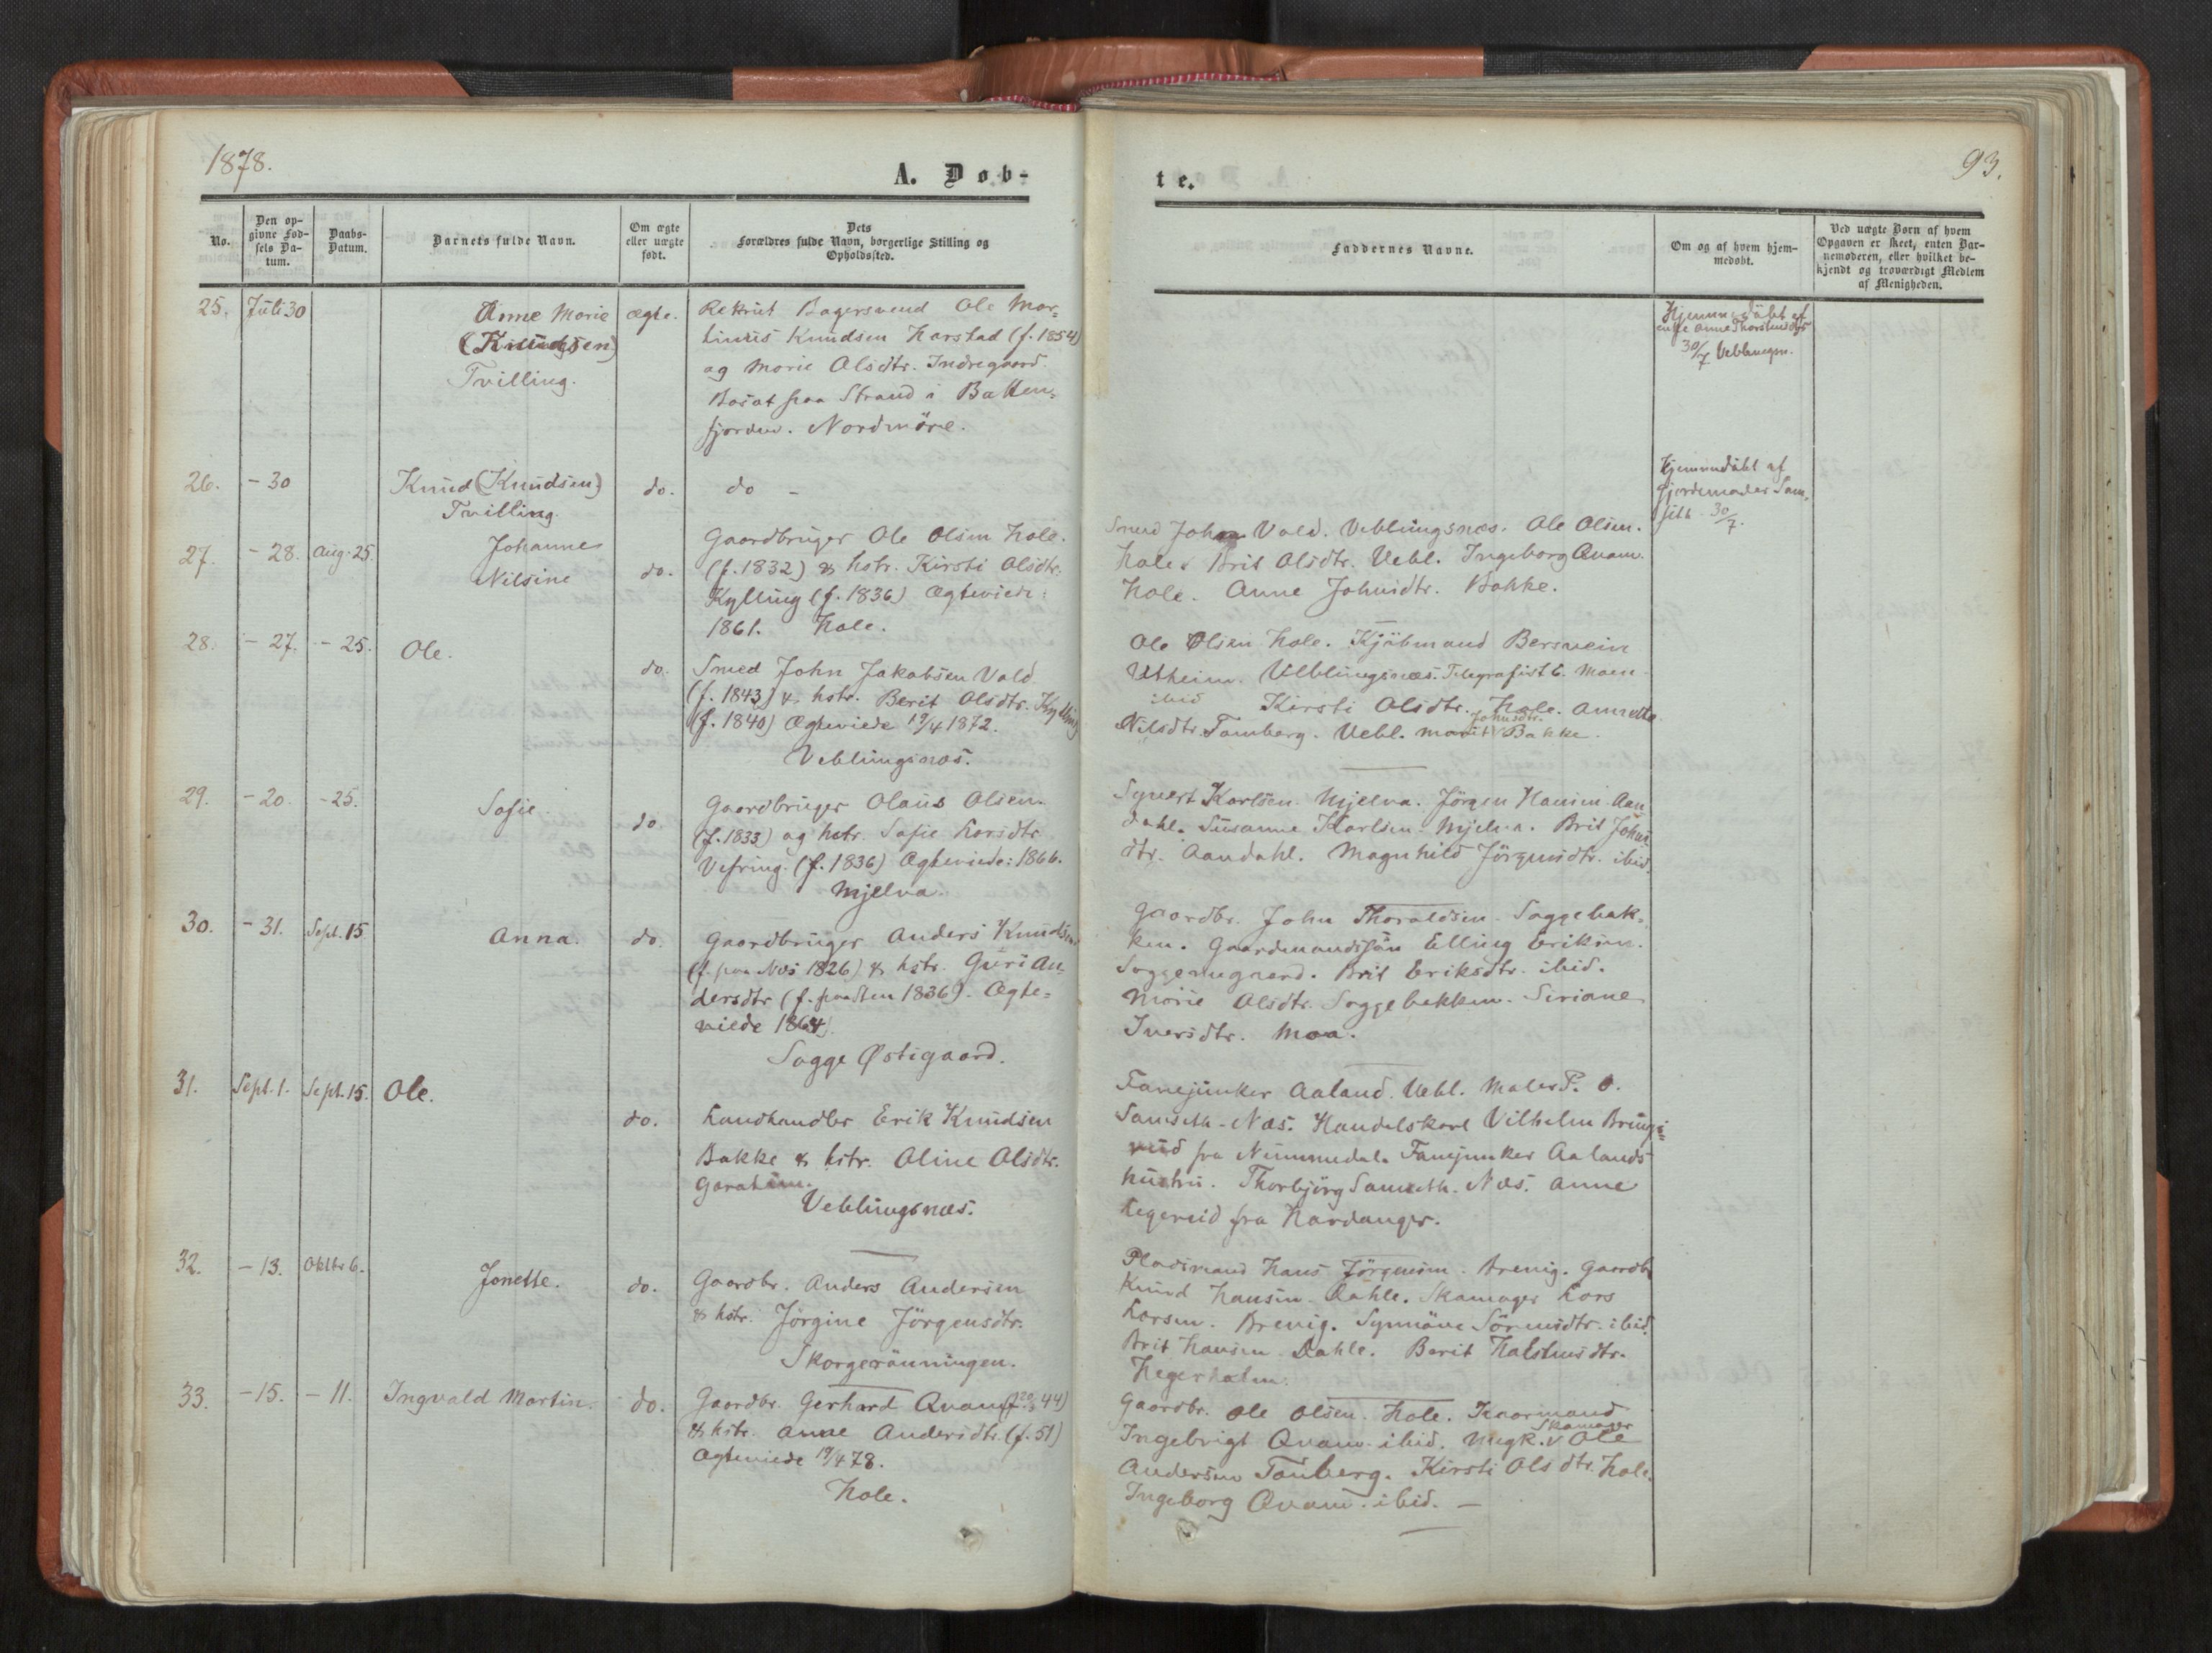 1878.
A. Døb-
No.
Den op-
givne Fød-
sels Da-
tum.
Daabs-
Datum.
Barnets fulde Navn.
Om ægte
eller uægte
født.
Dets
Forældres fulde Navn, borgerlige Stilling og
Opholdssted.
25. Juli 30 Anne Marie ægte. Rekrut Bagersvend Ole Mar-
(Knudsen) tinus Knudsen Harstad (f. 1854)
Tvilling. og Marie Olsdtr. Indregaard.
Bosat paa Strand i Batten-
fjorden. Nordmöre.
26. - 30 Knud (Knudsen) do. do -
Tvilling.
27. - 28. Aug. 25. Johanne Gaardbruger Ole Olsen Hole.
Nilsine do. (f. 1832) & hstr. Kirsti Olsdtr.
Kylling (f. 1836) Ægteviede:
1861. Hole.
28. - 27. - 25. Ole.
do. Smed John Jakobsen Vold
(f. 1843) & hstr. Berit Olsdtr. Kylling
(f. 1840) Ægteviede 19/4 1872.
Veblungsnæs.
29. - 20. - 25. Sofie. do. Gaardbruger Olaus Olsen.
(f. 1833) og hstr. Sofie Larsdtr.
Vefring. (f. 1836) Ægteviede: 1866.
Mjelva.
30. - 31. Sept. 15 Anna. do. Gaardbruger Anders Knudsen.
(f. paa Næs 1826) & hstr. Guri An-
dersdtr (f. paa Sten 1836). Ægte-
viede 1864.
Sogge Østigaard.
31. Sept. 1. Sept. 15. Ole.
do. Landhandler Erik Knudsen
Bakke & hstr. Oline Olsdtr.
Veblungsnæs.
32. - 13. Oktbr 6. Jonette. do. Gaardbr. Anders Andersen
& hstr. Jörgine Jörgensdtr.
Skorgerönningen.
33. - 15. - 11. Ingvald Martin. do. Gaardbr. Gerhard Qvam (f. 44)
& hstr. Anne Andersdtr. (f. 51)
Ægteviede 19/4 78.
Hole.
te.
93.
Faddernes Navne.
Om og af hvem hjem-
medøbt.
Ved uægte Børn af hvem
Opgaven er skeet, enten Bar-
nemoderen, eller hvilket be-
kjendt og troværdigt Medlem
af Menigheden.
Hjemmedöbt af
enke Anne Thorstensdtr
30/7 Veblungsn.
Hjemmedöbt af
Gjordemoder Sam-
seth 30/7.
Smed John Vold. Veblungsnæs. Ole Olsen.
Hole. Brit Olsdtr. Vebl. Ingeborg Qvam.
Hole. Anne Johnsdtr. Bakke.
Ole Olsen Hole. Kjöbmand Bersvein
Utheim. Veblungsnæs. Telegrafist C. Moen
ibid Kirsti Olsdtr. Hole. Annette
Johnsdtr.
Nilsdtr. Tomberg. Vebl. Marit Bakke.
Syvert Karlsen. Mjelva. Jörgen Hansen Aan-
dahl. Susanne Karlsen. Mjelva. Brit Johns-
dtr. Aandahl. Magnhild Jörgensdtr. ibid.
Gaardbr. John Thoraldsen. Soggebak-
ken. Gaardmandssön Elling Eriksen.
Brit Eriksdtr. ibid.
Marie Olsdtr. Soggebakken. Seriane
Iversdtr. Moa.
Fanejunker Aaland. Vebl. Maler P. O.
Samseth. Næs. Handelskarl Vilhelm
fra Nummedal. Fanejunker Aalands
hustru. Thorbjörg Samseth. Næs. Anne
Legereid fra Hardanger.
Pladsmand Hans Jörgensen. Brevig. Gaardbr
Knud Hansen. Dahle. Skomager Lars
Larsen. Brevig. Synnöve Sörensdtr. ibid.
Brit Hansen Dahle. Berit Halstensdtr.
Hegerholm.
Gaardbr. Ole Olsen. Hole. Kaarmand
Skomager
Ingebrigt Qvam ibid. Ungk. Ole
Andersen Tomberg. Kirsti Olsdtr. Hole.
Ingeborg Qvam. ibid. -